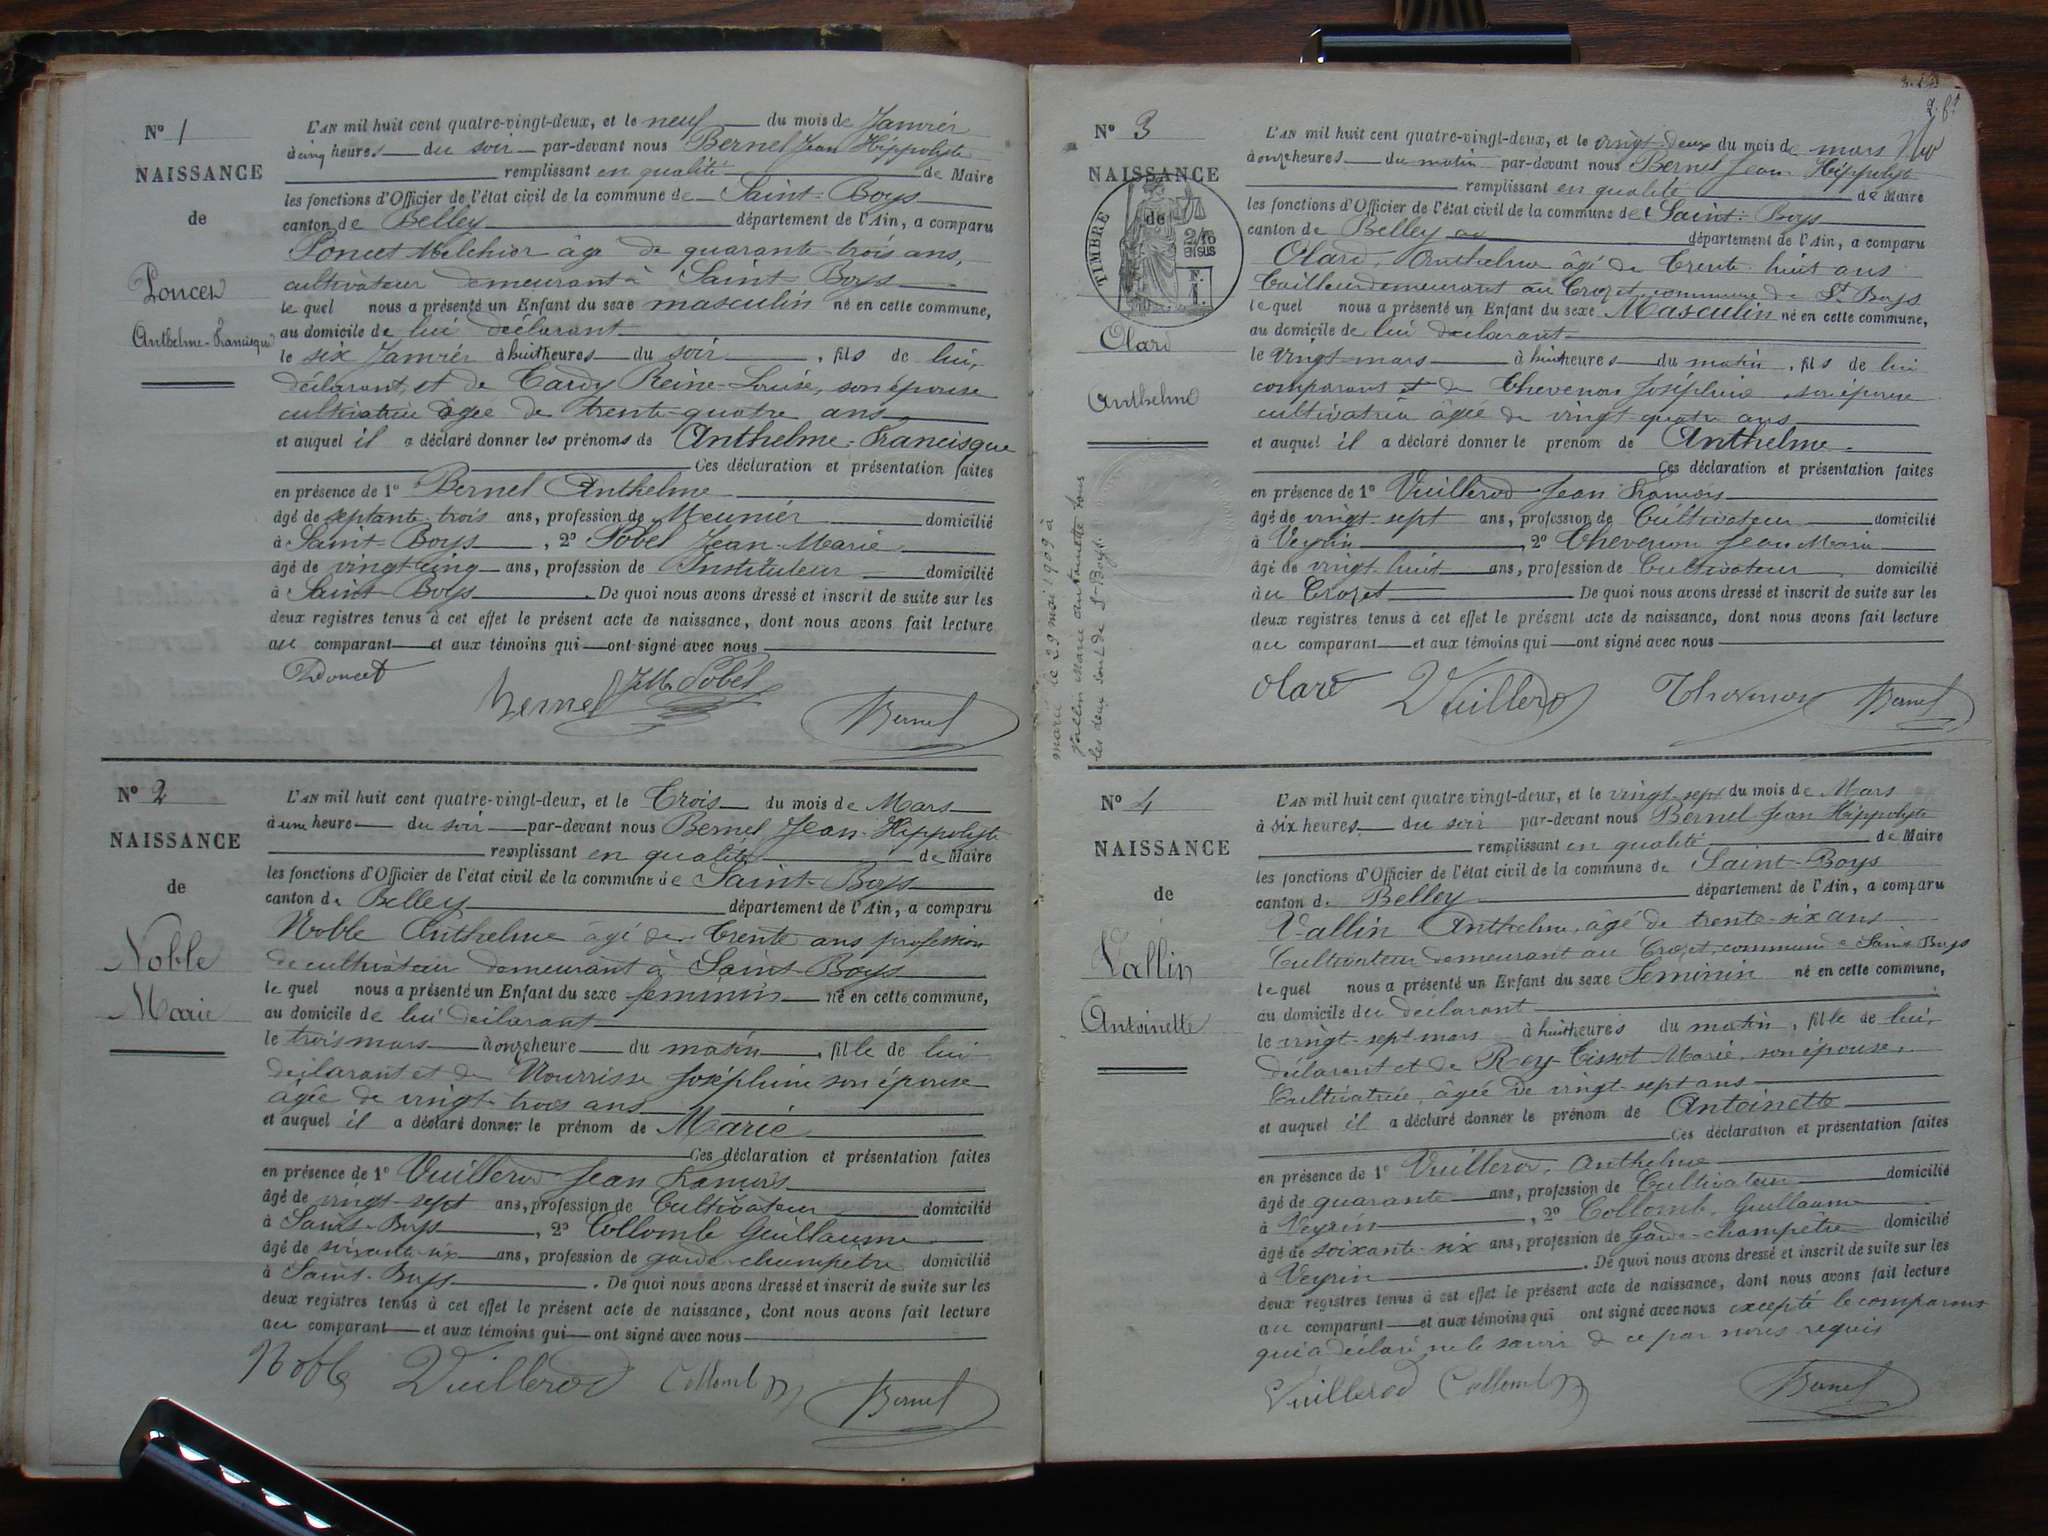 N° 1
NAISSANCE
de
Poncet
Anthelme-Francisque
L'AN mil huit cent quatre-vingt-deux, et le neuf du mois de Janvier
à cinq heures du soir par-devant nous Bernel Jean Hippolyte
remplissant en qualité de Maire
les fonctions d'Officier de l'état civil de la commune de Saint-Boys
canton de Belley département de l'Ain, a comparu
Poncet Melchior âgé de quarante-trois ans,
cultivateur demeurant à Saint-Boys
le quel nous a présenté un Enfant du sexe masculin né en cette commune,
au domicile de lui déclarant
le six Janvier à huit heures du soir, fils de lui,
déclarant, et de Tardy Reine-Louise, son épouse
cultivatrice âgée de trente-quatre ans
et auquel il a déclaré donner les prénoms de Anthelme-Francisque
Ces déclaration et présentation faites
en présence de 1° Bernel Anthelme
âgé de septante trois ans, profession de Meunier domicilié
à Saint-Boys, 2° Pobel Jean-Marie
âgé de vingt cinq ans, profession de Instituteur domicilié
à Saint-Boys. De quoi nous avons dressé et inscrit de suite sur les
deux registres tenus à cet effet le présent acte de naissance, dont nous avons fait lecture
au comparant et aux témoins qui ont signé avec nous
Poncet
Bernel JM Pobel
Bernel
N° 2
NAISSANCE
de
Noble
Marie
L'AN mil huit cent quatre-vingt-deux, et le Trois du mois de Mars
à une heure du soir par-devant nous Bernel Jean-Hippolyte
remplissant en qualité de Maire
les fonctions d'Officier de l'état civil de la commune de Saint-Boys
canton de Belley département de l'Ain, a comparu
Noble Anthelme âgé de Trente ans profession
de cultivateur demeurant à Saint-Boys
le quel nous a présenté un Enfant du sexe féminin né en cette commune,
au domicile de lui déclarant
le trois mars à onze heure du matin, fille de lui
déclarant et de Nourrisse Joséphine son épouse
âgée de vingt-trois ans
et auquel il a déclaré donner le prénom de Marie
Ces déclaration et présentation faites
en présence de 1° Vuillerod Jean François
âgé de vingt-sept ans, profession de Cultivateur domicilié
à Saint-Boys, 2° Collomb Guillaume
âgé de soixante six ans, profession de garde-champêtre domicilié
à Saint-Boys. De quoi nous avons dressé et inscrit de suite sur les
deux registres tenus à cet effet le présent acte de naissance, dont nous avons fait lecture
au comparant et aux témoins qui ont signé avec nous
Noble Vuillerod Collomb
Bernel
N° 3
NAISSANCE
de
TIMBRE
2/10
EN SUS
N.
1.
Olard
Anthelme
marié le 29 mai 1909 à
Vallin Marie antoinette tous
les deux sont de St-Boys
L'AN mil huit cent quatre-vingt-deux, et le vingt-deux du mois de mars
à onze heures du matin par-devant nous Bernel Jean Hippolyte
remplissant en qualité de Maire
les fonctions d'Officier de l'état civil de la commune de Saint-Boys
canton de Belley département de l'Ain, a comparu
Olard, Anthelme âgé de Trente huit ans
Tailleur demeurant au Crozet commune de St Boys
le quel nous a présenté un Enfant du sexe Masculin né en cette commune,
au domicile de lui déclarant
le Vingt mars à huit heures du matin, fils de lui
comparant et de Thevenon Joséphine son épouse
cultivatrice âgée de vingt-quatre ans
et auquel il a déclaré donner le prénom de Anthelme
Ces déclaration et présentation faites
en présence de 1° Vuillerod Jean François
âgé de vingt-sept ans, profession de Cultivateur domicilié
à Veyrin, 2° Thevenon Jean Marie
âgé de vingt-huit ans, profession de Cultivateur domicilié
au Crozet De quoi nous avons dressé et inscrit de suite sur les
deux registres tenus à cet effet le présent acte de naissance, dont nous avons fait lecture
au comparant et aux témoins qui ont signé avec nous
Olard Vuillerod Thevenon Bernel
N° 4
NAISSANCE
de
Vallin
Antoinette
L'AN mil huit cent quatre vingt-deux, et le vingt-sept du mois de Mars
à six heures du soir par-devant nous Bernel Jean Hippolyte
remplissant en qualité de Maire
les fonctions d'Officier de l'état civil de la commune de Saint-Boys
canton de Belley département de l'Ain, a comparu
Vallin Anthelme, âgé de trente-six ans
Cultivateur demeurant au Crozet, commune de Saint-Boys
le quel nous a présenté un Enfant du sexe Féminin né en cette commune,
au domicile du déclarant
le vingt-sept mars à huit heures du matin, fille de lui,
déclarant et de Rey-Tissot Marie, son épouse,
Cultivatrice, âgée de vingt-sept ans
et auquel il a déclaré donner le prénom de Antoinette
Ces déclaration et présentation faites
en présence de 1° Vuillerod, Anthelme
âgé de quarante ans, profession de Cultivateur domicilié
à Veyrin, 2° Collomb, Guillaume
âgé de soixante-six ans, profession de Garde-champêtre domicilié
à Veyrin. De quoi nous avons dressé et inscrit de suite sur les
deux registres tenus à cet effet le présent acte de naissance, dont nous avons fait lecture
au comparant et aux témoins qui ont signé avec nous excepté le comparant
qui a déclaré ne le savoir de ce par nous requis
Vuillerod Collomb
Bernel